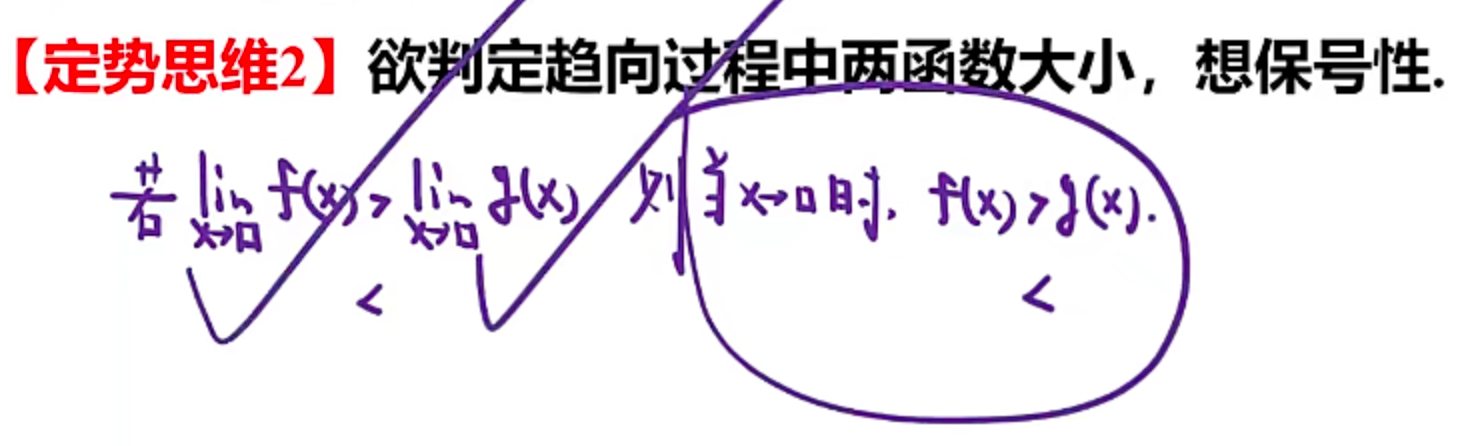 【定势思维2】欲判定趋向过程中两函数大小，想保号性.
若 lim x→□ f(x) > lim x→□ g(x) 则当 x→□ 时, f(x) > g(x).
< <